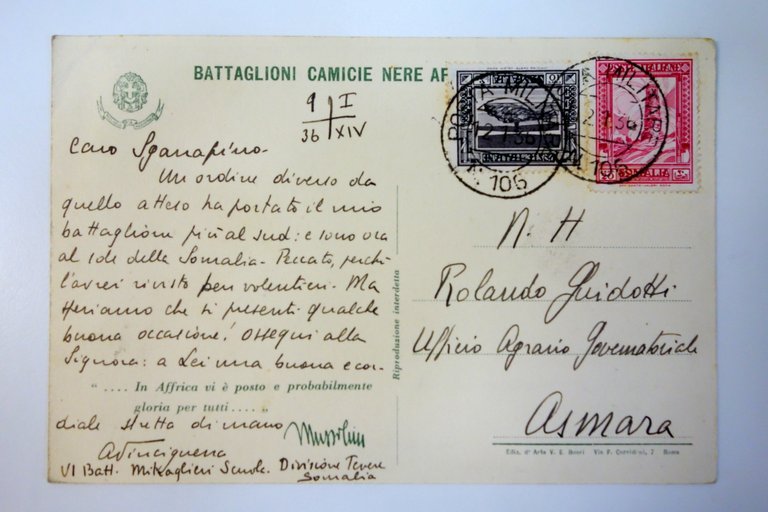 BATTAGLIONI CAMICIE NERE AF
9 I
36 XIV
POSTA MILITARE
12.1.36
N. 106
POSTE ITALIANE
SOMALIA
Caro Sganapino.
Un ordine diverso da
quello atteso ha portato il mio
battaglione più al sud: e sono ora
al sole della Somalia. Peccato, perché
l'avrei rivisto ben volentieri. Ma
speriamo che si presenti qualche
buona occasione! Ossequi alla
Signora: a Lei una buona e cor-
" .... In Affrica vi è posto e probabilmente
gloria per tutti .... „
diale stretta di mano
Mussolini
AVinciguerra
VI Batt. Mitraglieri Scuola. Divisione Tevere
Somalia
Riproduzione interdetta
N. H
Rolando Guidotti
Ufficio Agrario Governatoriale
Asmara
Ediz. d'Arte V. E. Boeri Via P. Corridoni, 7 Roma